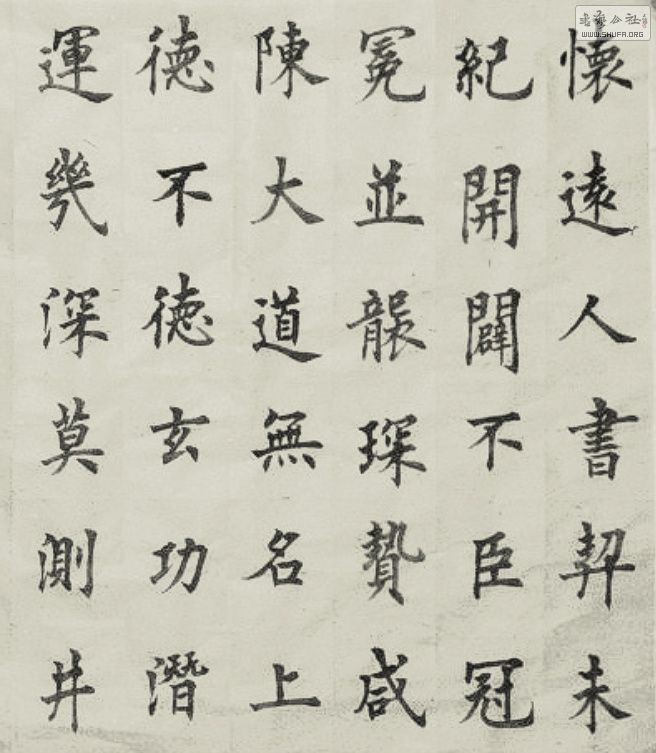 懷遠人書契未
紀開闢不臣冠
冕並襲琛贄咸
陳大道無名上
德不德玄功潛
運幾深莫測井
WWW.SHUFA.ORG